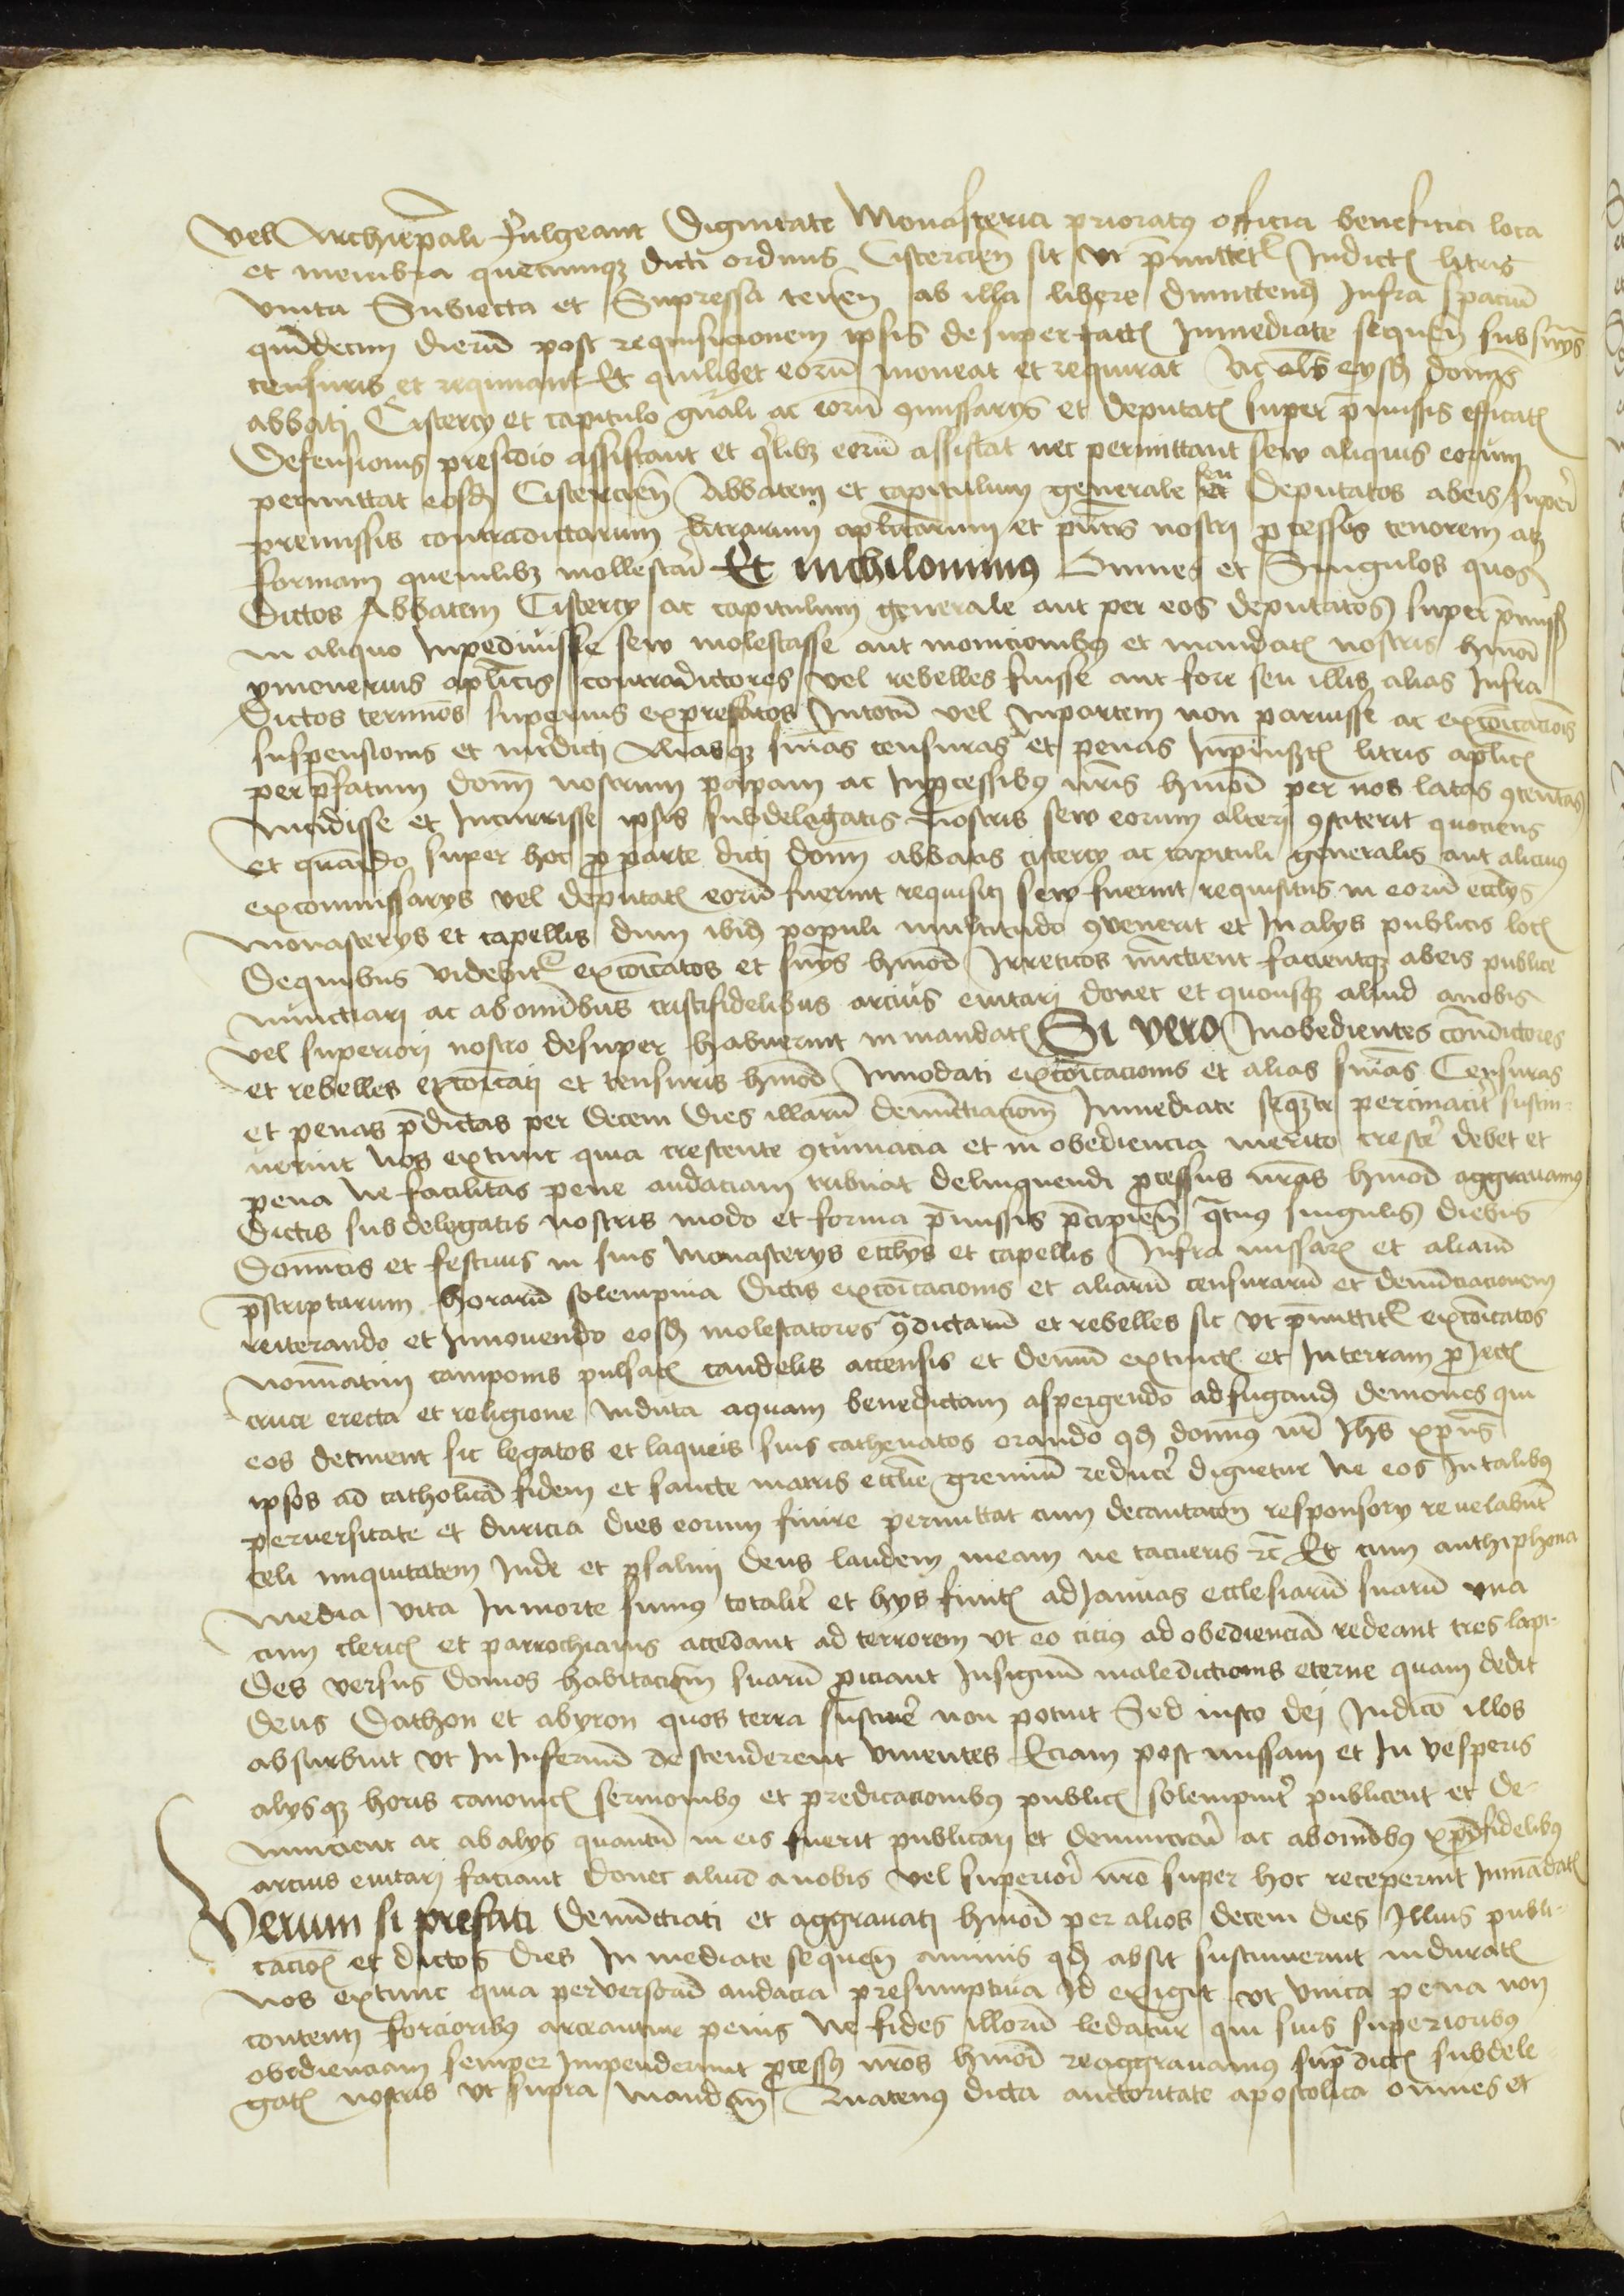 vel Archiepāli fulgeant Dignitate Monasteria prioratꝰ officia beneficia loca
et membra quecumqꝫ dicti ordinis Cistercieñ sit vt p̄mittitᷣ Indictꝭ litris
vnita Subiecta et Supressa teneñ ab illa libere dimittenḏ Infra spaciū
quīdecim dierū post requisicionem ipsis desuper factꝭ Inmediate sequeñ sub sn̄ijs
censuris et requirant Et quilibet eorū moneat et requirat Ac al̄s eysḏ domīs
abbati Cistercy et capitulo gn̄ali ac eorū ꝯmissarys et deputatꝭ super p̄missis efficatꝭ
Defensionis presidio assistant et qͥlibꝫ eorū assistat nec permittant sew aliquis eorum
permittat eosḏ Cistercieñ Abbatem et capitulum generale seu Deputatos abeis super
premissis contradictarum litrarum aplicarum et pn̄tis nostri ꝓcessus tenorem atqꝫ
formam quemlibꝫ mollestari Et nichilominus Omnes et Singulos quos
Dictos Abbatem Cistercy ac capitulum generale aut per eos deputatos super p̄miss
in aliquo Inpedivisse sew molestasse aut monicionibꝰ et mandatꝭ nostris hmoī
ymoverius aplicis contradictores vel rebelles fuisse aut fore seu illis alias Infra
Dictos terminos superius expressatos Intotū vel Inpartem non paruisse ac excōicacionis
suspensionis et int̄dicti Aliasqꝫ sn̄ias censuras et penas Inp̄insertꝭ litris aplicꝭ
per p̄fatum domī nostrum papam ac Inꝓcessibꝰ nr̄is hmoī per nos latas ꝯtentas
Incidisse et Incurrisse ipsis subdelegatis nostris sew eorum alteri ꝯstiterit quociens
et quando super hoc ꝓ parte dicti domī abbatis cistercy ac capituli generalis aut alicuiꝰ
excommissarys vel deputatꝭ eorū fuerint requisiti sew fuerint requisitus in eorū eccl̄ys
Monasterys et capellis dum ibiḏ populi multitudo ꝯvenerit et Inalys publicis locꝭ
Dequibus videbitᷣ excōicatos et sn̄ys hmoḏ Irreticos nūctient facientqꝫ abeis publice
nunctiari ac abomnībus cristifidelibus arcius euitari donec et quousqꝫ aliud anobis
vel superiori nostro desuper habuerint in mandatꝭ Si vero Inobedientes contradictores
et rebelles excōicati et censuris hmoḏ Innodati excōicacionis et alias sn̄ias Censuras
et penas p̄dictas per decem dies illarū denūctiacionem Inmediate sequētes pertinacit̄ sustin
uerint Nos extunc quia crescente ꝯtumacia et in obediencia merito crescē debet et
pena Ne facilitas pene audaciam tribuat delinquendi ꝓcessus nr̄os hmoḏ aggravamus
Dictis subdelegatis nostris modo et forma p̄missis p̄cipieñ qͣtinꝰ singulis diebus
Dominīcis et festiuis in suis Monasterys eccl̄ys et capellis Infra missarꝫ et aliarū
p̄scriptarum horarū solempnia Dictis excōicacionis et aliarū censurarū et denūctiacionem
reiterando et Innouendo eosḏ molestatores ꝯtradictarū et rebelles sic vt p̄mittitᷣ excōicatos
nominatim campanis pulsatꝭ candelis accensis et demū extinctꝭ et Interram ꝓiectꝭ
cruce erecta et religione Induta aquam benedictam aspergendo adfugandḏ demones qui
eos detinent sic legatos et laqueis suis cathenatos orando qḏ dominꝰ nr̄ Jh̄s xp̄us
ipsos ad catholicā fidem et sancte matris eccl̄ie gremiū reducē dignetur Ne eos Intalibꝰ
peruersitate et duricia dies eorum finire permittat cum decantacoñ responsory reuelabūt
celi iniquitatem Jude et psalmi Deus laudem meam ne tacueris ꝛc̄ Et cum anthiphona
Media vita Inmorte sumꝰ totalit̄ et hys finitꝭ adJanuas ecclesiarū suarū vna
cum clericꝭ et parrochianis accedant ad terrorem vt eo ciciꝰ ad obedienciā redeant tres lapi
Des versus domos habitacionū suarū ꝓiciant Insignum maledictionis eterne quam dedit
Deus Dathon et abyron quos terra sustinē non potuit Sed iusto dei Judicō illos
absurbuit vt InInfernū descenderent viuentes Eciam post missam et In vesperis
alysqꝫ horis canonicꝭ sermonibꝰ et predicacionibꝰ publicꝭ solempnit̄ publicent et de
nuncient ac abalys quantū in eis fuerit publicari et denunctiari ac abomnībꝰ xp̄ifidelibꝰ
arcius euitari faciant donec aliud anobis vel superiori nr̄o super hoc receperint Inmandatꝭ
Verum si prefati denūctiati et aggrauati hmoī per alios decem dies Illius publi
cacioñ et dictos dies In mediate sequeñ animis qḏ absit sustinuerint induratꝭ
Nos extunc quia perversorū audacia presumptiua Id exigit vt vnica pena non
contenti forcioribꝰ arceantur penis Ne fides illorū ledatur qui suis superioribꝰ
obedienciam semper Impenderunt ꝓcessꝰ nr̄os hmoī reaggrauamus supͣ dictꝭ subdele
gatꝭ nostris vt supra mandañ Quatenꝰ dicta auctoritate apostolica omnes et